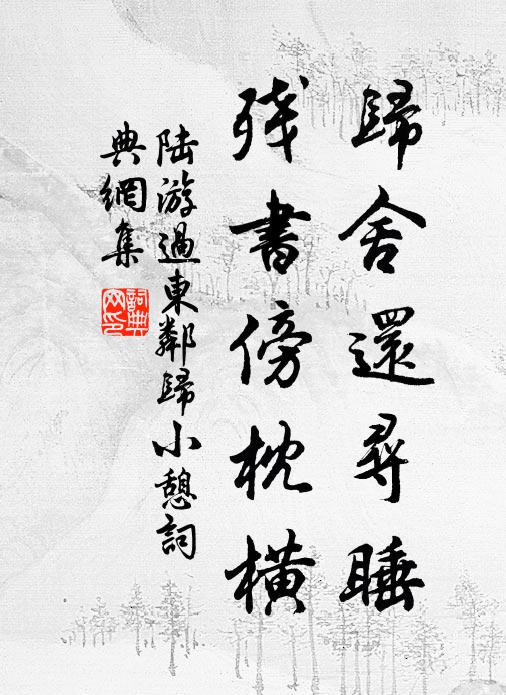 歸舍還尋睡
殘書傍枕橫
陸游過東鄰歸小憩詞
典網集
詞典網印